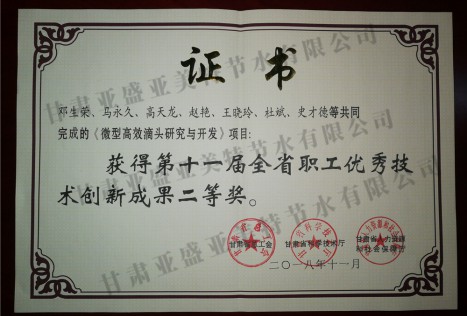 证书
邓生荣、马永久、高天龙、赵艳、王晓玲、杜斌、史才德等共同
完成的《微型高效滴头研究与开发》项目:
获得第十一届全省职工优秀技
术创新成果二等奖。
甘肃省总工会
甘肃省科学技术厅
甘肃省人力资源
和社会保障厅
二〇一八年十一月
甘肃亚盛亚美特节水有限公司
甘肃亚盛亚美特节水有限公司